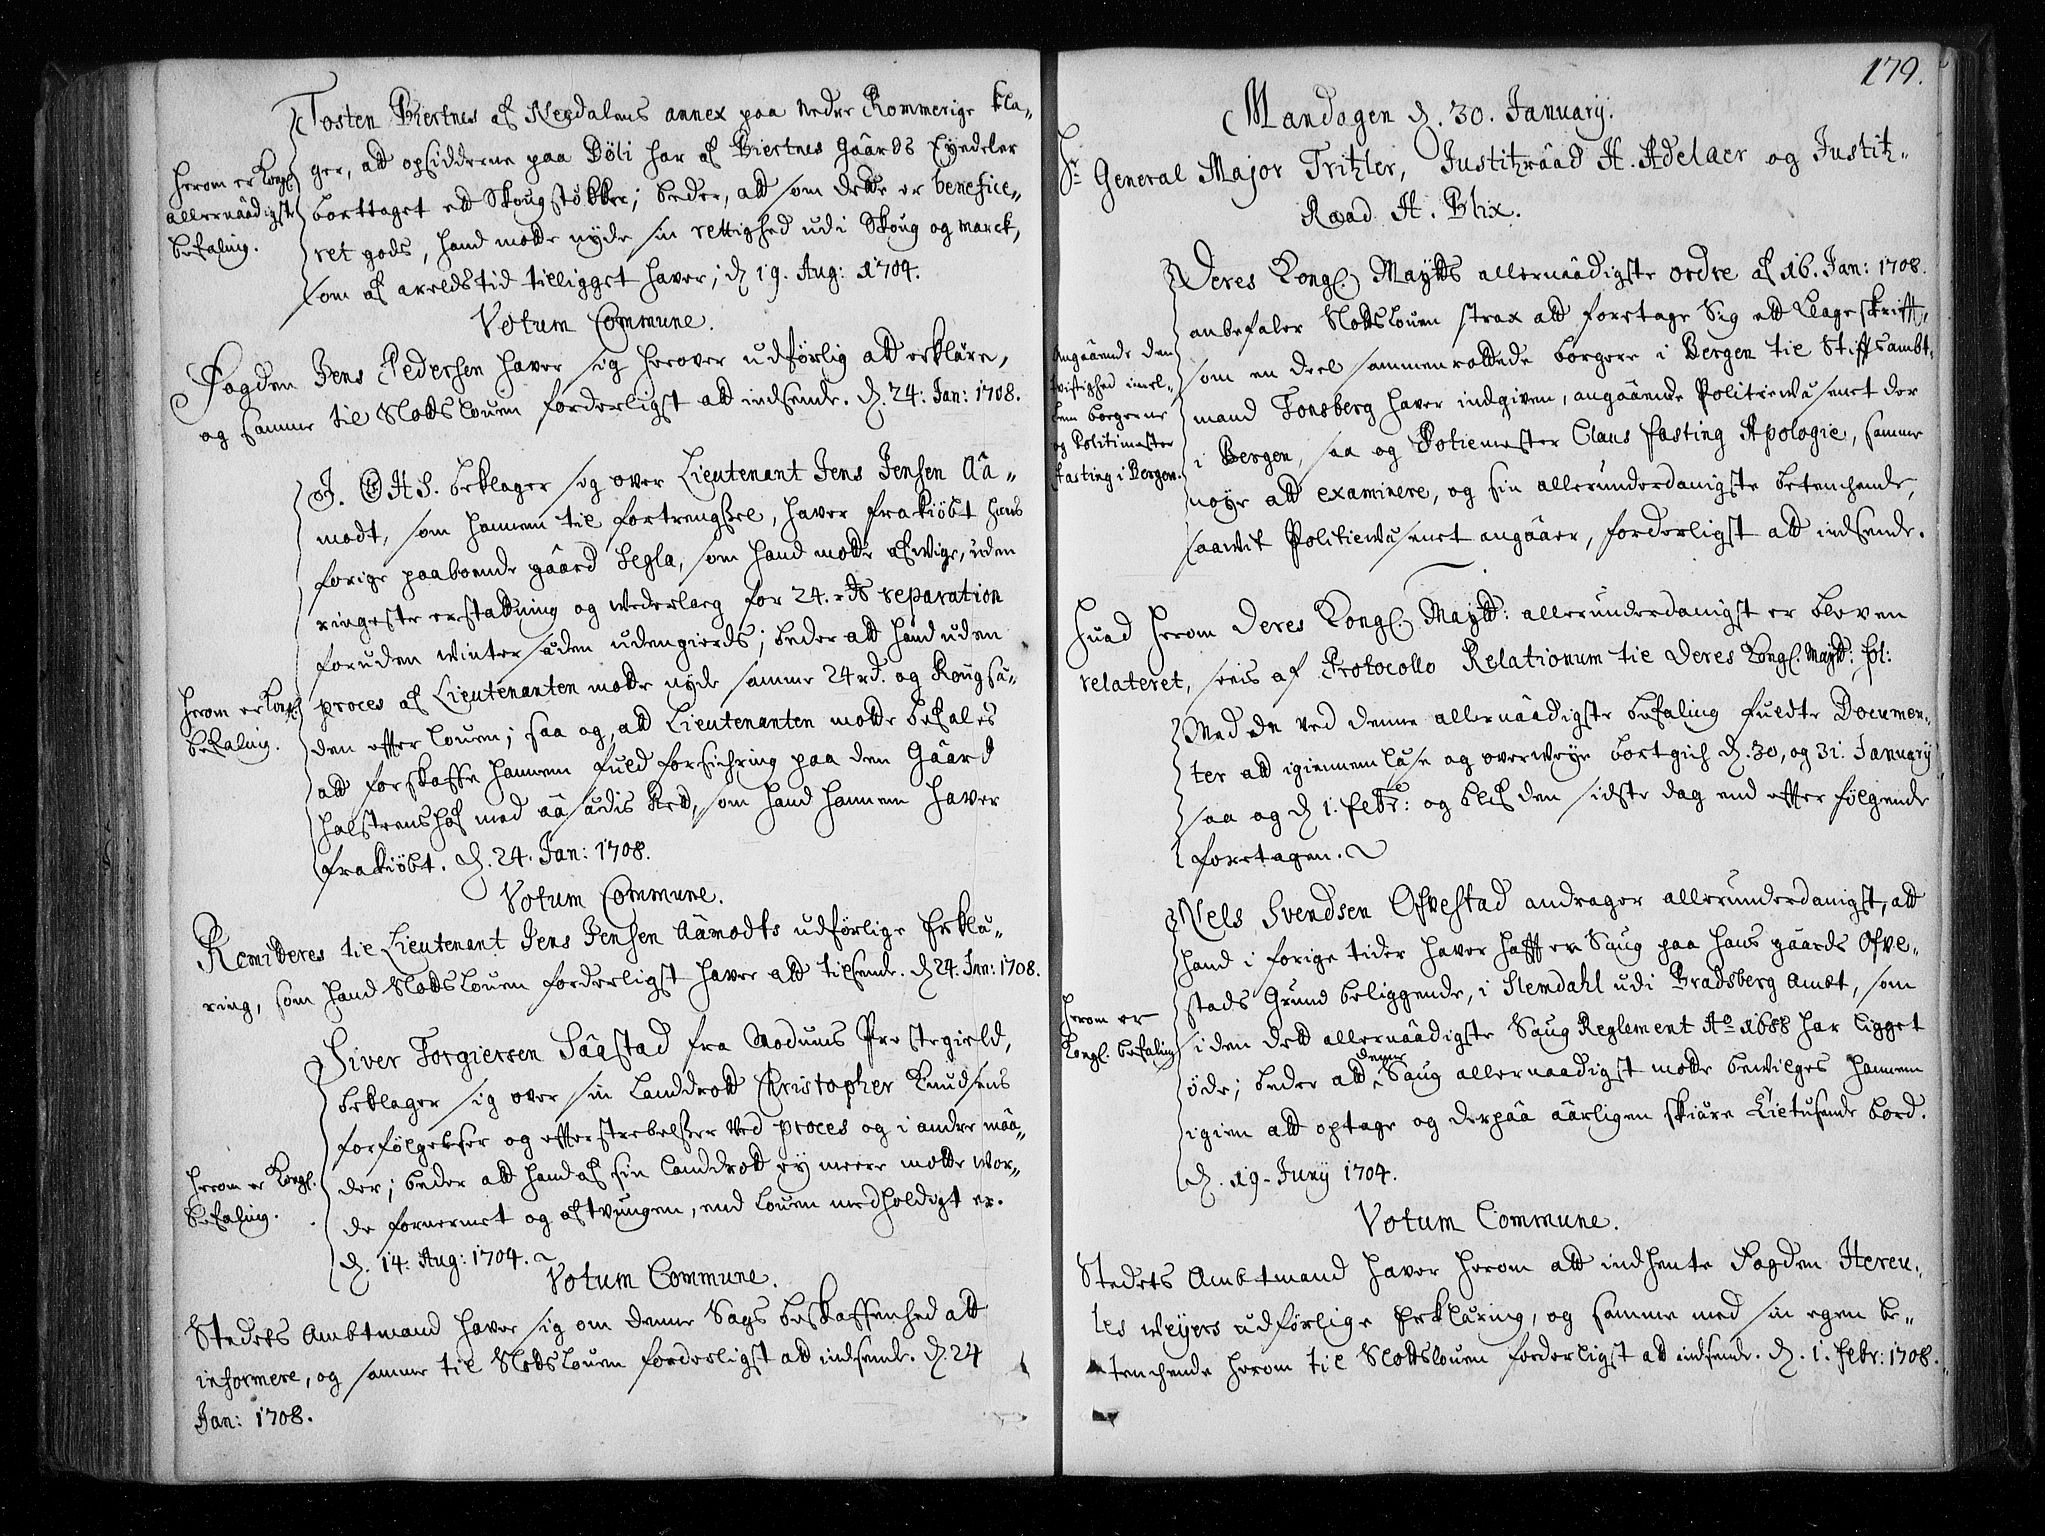 Tosten Biertnes af Nesdalens annex paa Nedre Rommerige kla-
ger, att opsidderne paa Döli har af Biertnes Gaards Eyedeler
borttaget ett Skougstøkke; beder, att som dette er benefice-
ret gods, hand motte nyde sin rettighed udi Skoug og marck,
som af areldstid tilligget haver; d 19. Aug: 1704.
herom er Kongl.
allernaadigste
befaling.
Votum Commune.
Fogden Jens Pedersen haver sig herover udförlig att erklære,
og samme til Slottslouen forderligst att indsende. d. 24. Jan: 1708.
beklager sig over Lieutenant Jens Jensen Aa-
modt, som hannem til fortrengssel, haver frakiöbt hans
forige paaboende gaard Segla, som hand motte afwige, uden
ringeste erstattning og wederlaeg for 24. rd reparation
foruden winter säden udengierds; beder att hand uden
proces af Lieutenanten motte nyde samme 24 rd. og Rougsä-
den effter louen; saa og, att Lieutenanten motte befales
att forskaffe hannem fuld forsichring paa den Gaard
Holstenshof med aasædis Rett, som hand hannem haver
frakiöbt. d. 24. Jan: 1708.
herom er Kongl.
befaling.
Votum Commune.
Remitteres til Lieutenant Jens Jensen Aamodts udförlige Erklæ-
ring, som hand Slottslouen forderligst haver att tilsende. d 24. Jan: 1708.
Siver Torgiersen Saastad fra Modums Prestegield,
beklager sig over sin Landdrott Christopher Knudsens
forfölgelser og effterstrebelsser ved proces og i andre maa-
der; beder att hand af sin landdrott ey meere motte wor-
de fornermet og aftvungen, end Louen medholdigt er.
d. 14. Aug: 1704.
herom er Kongl.
befaling.
Votum Commune.
Stedets Ambtmand haver sig om denne Sags beskaffenhed att
informere, og samme til Slottslouen forderligst att indsende. d. 24
Jan: 1708.
179.
Mandagen d. 30. January.
Hr General Major Tritzler, Justitzraad H. Adelaer og Justitz-
Raad H. Blix.
Deres Kongl. Maytts allernaadigste ordre af 16. Jan: 1708.
anbefaler Slottslouen strax att foretage Sig ett Klageskrifft,
som en deel sammenrottede borgere i Bergen til Stiffsambt-
mand Tonsberg haver indgiven, angaaende Politiewæsenet der
i Bergen, saa og Potiemester Claus fasting Apologie, samme
nöye att examinere, og sin allerunderdanigste betenchende,
saawit Politiewæsenet angaaer, forderligst att indsende.
Angaaende den
twistighed imel-
lem borgerne
og Politimester
fasting i Bergen.
Huad herom Deres Kongl. Maytt: allerunderdanigst er bleven
relateret, seeis af Protocollo Relationum til Deres Kongl. Maytt: fol:
Med de ved denne allernaadigste befaling fuldte Documen-
ter att igiennemläse og overweye bortgich d. 30, og 31. January
saa og d 1. febr: og blef den sidste dag end effterfølgende
foretagen.
Nels Svendsen Ofvestad andrager allerunderdanigst, att
hand i forige tider haver hafft en Saug paa hans gaards Ofve-
stads Grund beliggende, i Slemdahl udi Bradsberg Ambt, som
siden dett allernaadigste Saug Reglement Ao 1688 har ligget
öde; beder att denne Saug allernaadigst motte bewilges hannem
igien att optage og derpaa aarligen skiære Tietusende bord.
d. 19. Juny 1704.
herom er
Kongl. befaling
Votum Commune.
Stedets Ambtmand haver herom att indhente Fogden Hercu-
les Weyers udförlige Erklæring, og samme med sin egen be-
tenchende herom til Slottslouen forderligst at indsende. d. 1. febr: 1708.